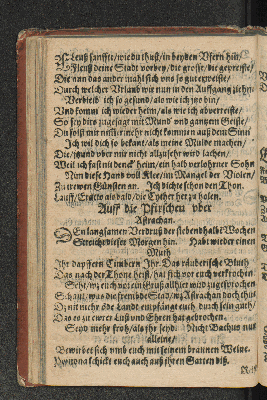 Fleuß sanffte/ wie du thust/ in beyden Ufern hin/
Fleuß deine Stadt vorbey/ die grosse/ die gepreiste/
Die nun das ander mahl sich uns so gut erweiste/
Durch welcher Urlaub wir nun in den Auffgang ziehn.
Verbleib' ich so gesund/ als wie ich jtzo bin/
Und komm' ich wieder heim/ als wie ich abverreiste/
So sey dirs zugesagt mit Mund' und gantzem Geiste/
Du solst mir nicht mehr nicht kommen auß dem Sinn'
Ich wil dich so bekant/ als meine Mulde machen/
Die/ itzund über mir nicht allzusehr wird lachen/
Weil ich fast mit dem heim/ ein halb verlohrner Sohn
Nim diese Hand voll Klee/ im Mangel der Violen/
Zu treuen Günsten an. Ich dichte schon den Thon.
Lauff/ Erato als bald/ die Cyther her zu holen.
Auff die Pfirschen vber
Astrachan.
Den langsamen Verdruß der sieben halbe Wochen
Streicht dieser Morgen hin. Habt wieder einen
Muth
Ihr dapffern Cimbern Ihr. Das räuberische Bluth
Das nach der Thone heist/ hat sich vor euch verkrochen
Seht/ wz euch vor ein Gruß allhier wird zugesprochen
Schaut/ was die frembde Stadt/ wz Astrachan doch thut
Damit nicht öde Land' empfänge euch/ durch sein guth/
Das es zu eurer Lust und Ehren hat gebrochen.
Seyd mehr froh/ als ihr seyd:
alleine/
Bewirbet sich umb euch mit seinem braunen Weine.
Pomona schickt euch auch auß ihren Garten diß.